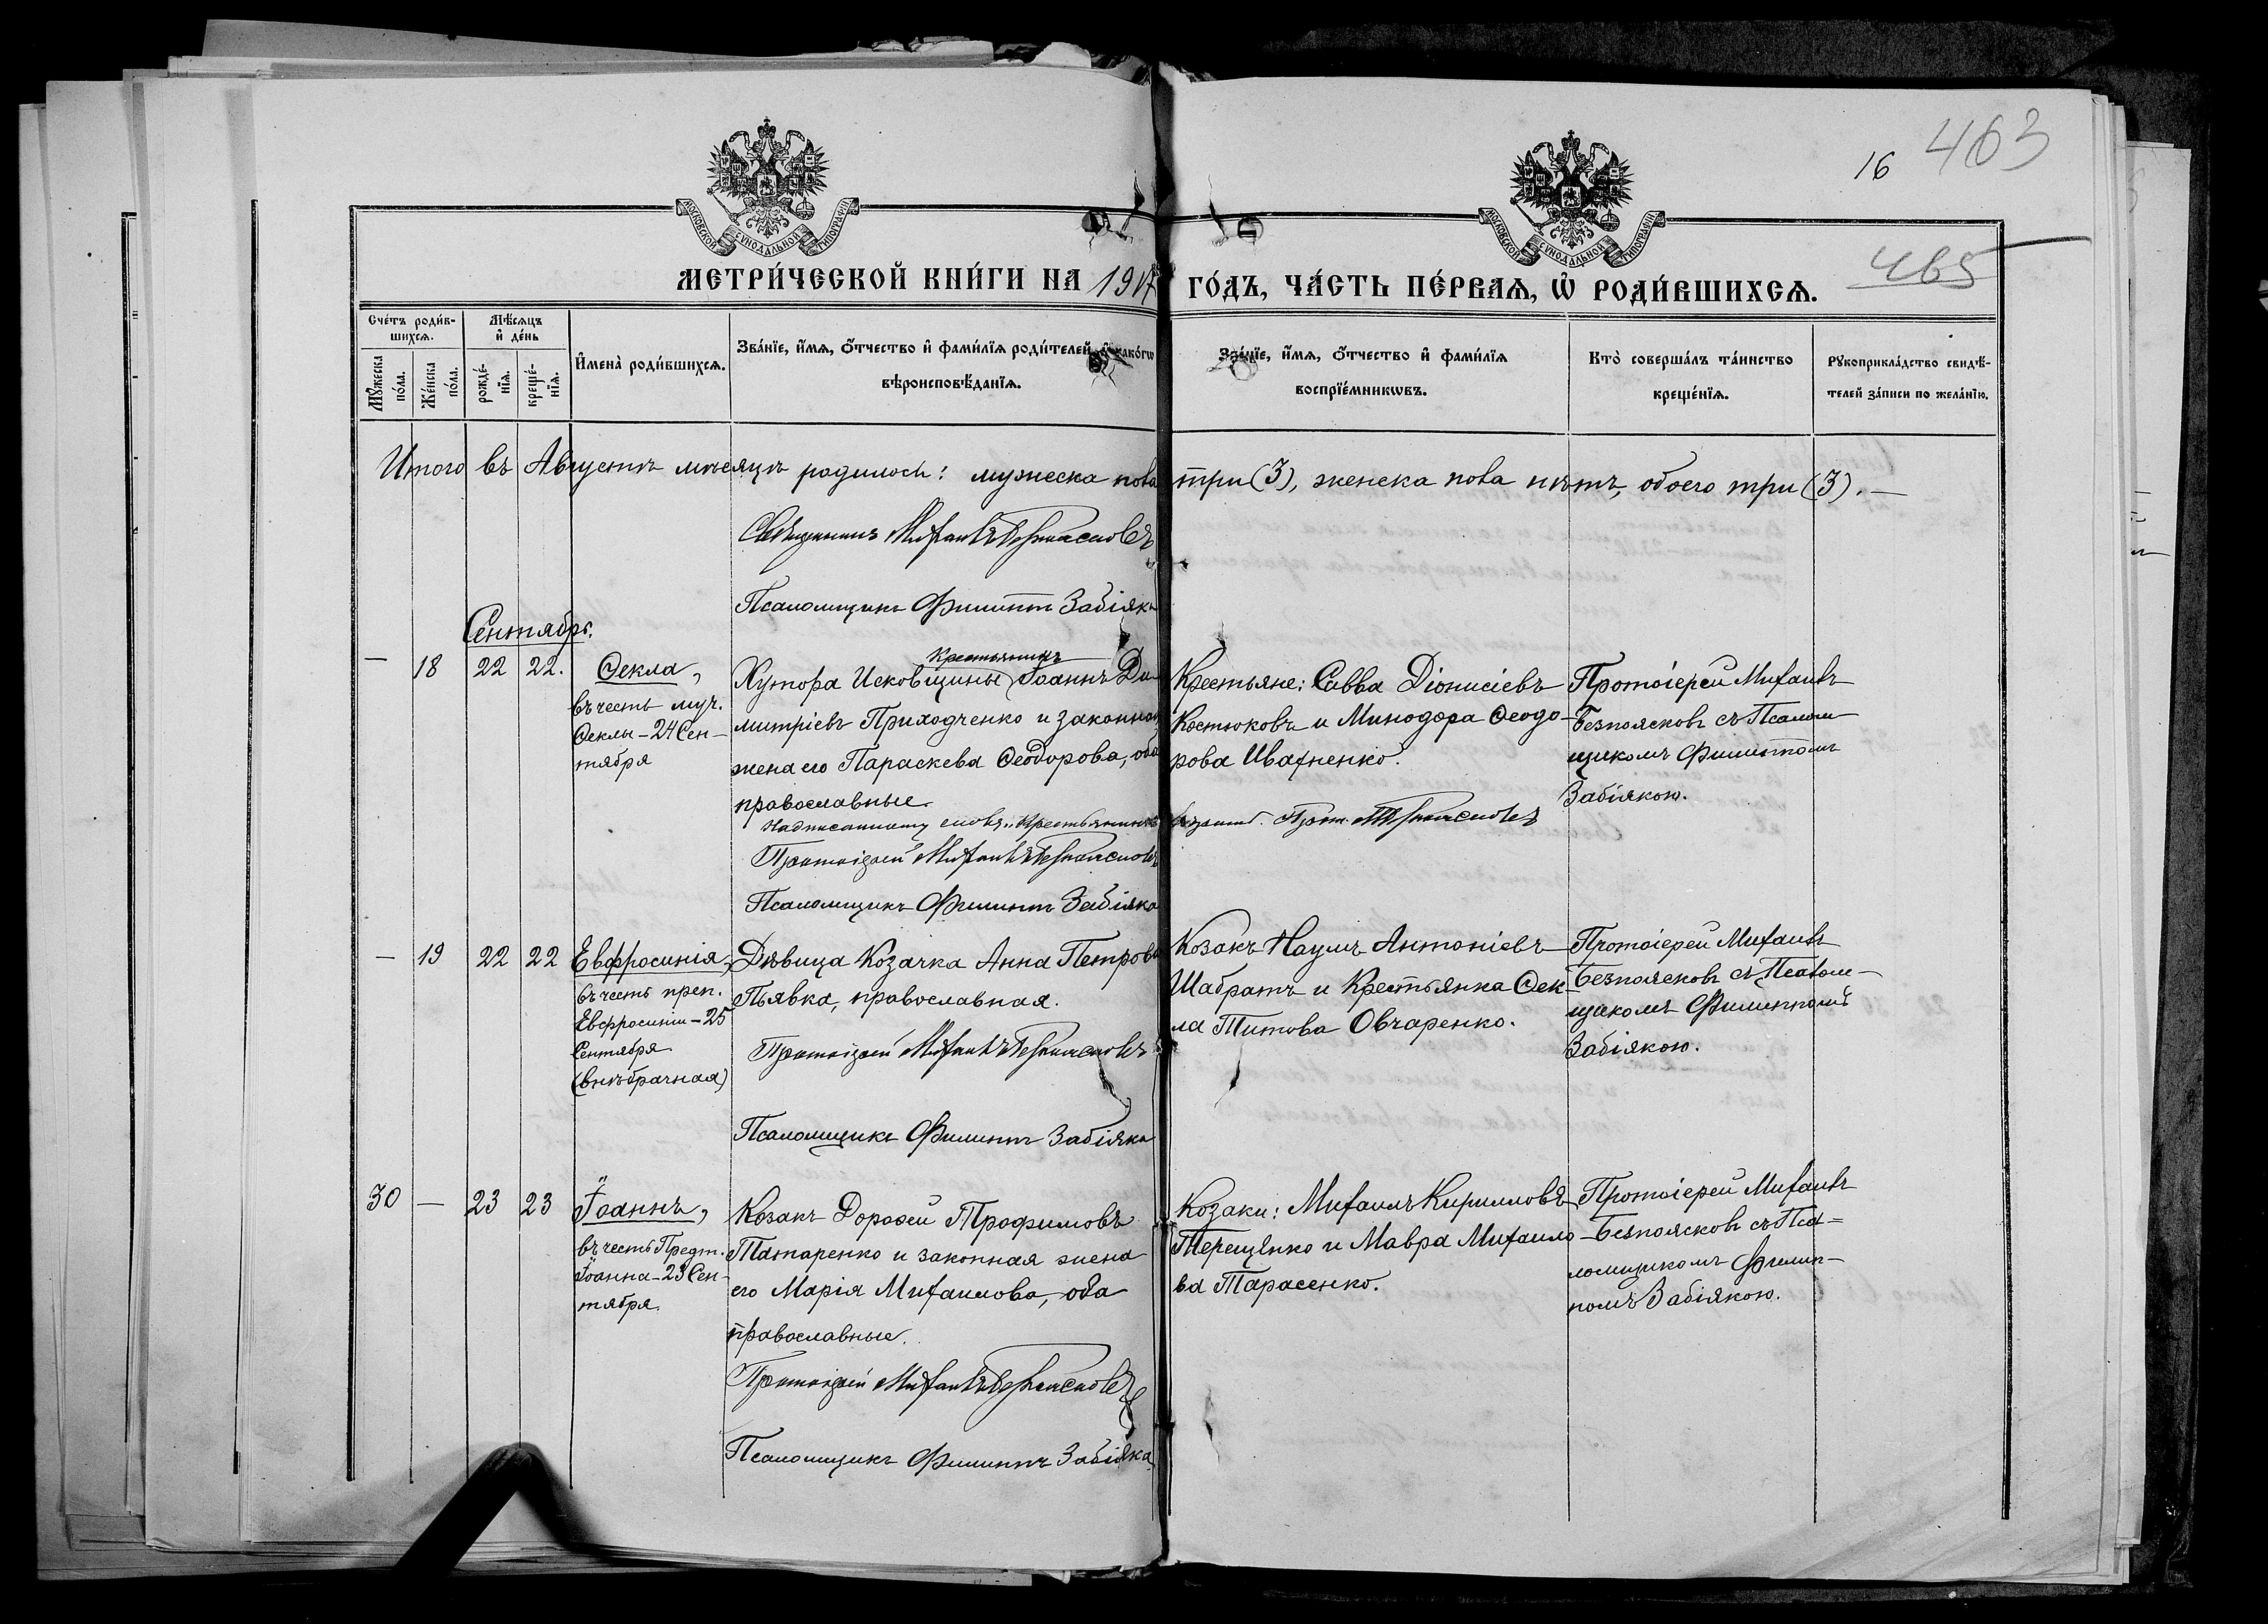 16 463
465
МОСКОВСКОЙ СѴНОДАЛЬНОЙ ТИПОГРАФІИ
МОСКОВСКОЙ СѴНОДАЛЬНОЙ ТИПОГРАФІИ
МЕТРИ́ЧЕСКОЙ КНИ́ГИ НА 1917 ГО́ДЪ, ЧА́СТЬ ПЕ́РВАѦ, Ѡ҆ РОДИ́ВШИХСѦ.
Сче́тъ роди́в-
шихсѧ.
Мꙋ́жеска по́ла.
Же́нска по́ла.
Мѣ́сѧцъ
и҆ де́нь
рожде́-
нїѧ.
креще́-
нїѧ.
И҆мена̀ роди́вшихсѧ.
Зва́нїе, и҆́мѧ, ѻ҆́тчество и҆ фами́лїѧ роди́телей, и҆ како́гѡ
вѣроисповѣ́данїѧ.
Зва́нїе, и҆́мѧ, ѻ҆́тчество и҆ фами́лїѧ
воспрїе́мникѡвъ.
Кто̀ соверша́лъ та́инство
креще́нїѧ.
Рꙋкоприкла́дство свидѣ́-
телей за́писи по жела́нїю.
Итого въ Августѣ мѣсяцѣ родилось: мужеска пола три (3), женска пола нѣтъ, обоего три (3). —
Священникъ Михаилъ Безпоясковъ
Псаломщикъ Филиппъ Забіяка
Сентябрь.
— 18 22 22.
Ѳекла,
въ честь муч.
Ѳеклы – 24 Сен-
тября
Крестьянинъ
Хутора Исковщины Іоаннъ Ди-
митріевъ Приходченко и законная
жена его Параскева Ѳеодорова, оба
православные.
Надписанному слову: „Крестьянинъ" вѣрить. Прот. МБезпоясковъ
Протоіерей Михаилъ Безпоясковъ
Псаломщикъ Филиппъ Забіяка
Крестьяне: Савва Діонисіевъ
Костюковъ и Минодора Ѳеодо-
рова Ивахненко.
Протоіерей Михаилъ
Безпоясковъ съ Псалом-
щикомъ Филиппомъ
Забіякою.
— 19 22 22
Евфросинія,
въ честь преп.
Евфросиніи – 25
Сентября
(внѣбрачная)
Дѣвица Козачка Анна Петрова
Пьявка, православная.
Протоіерей Михаилъ Безпоясковъ
Псаломщикъ Филиппъ Забіяка
Козакъ Наумъ Антоніевъ
Шабратъ и Крестьянка Ѳек-
ла Титова Овчаренко.
Протоіерей Михаилъ
Безпоясковъ съ Псалом-
щикомъ Филиппомъ
Забіякою.
30 — 23 23
Іоаннъ,
въ честь Предт.
Іоанна – 23 Сен-
тября.
Козакъ Дороѳей Трофимовъ
Татаренко и законная жена
его Марія Михаилова, оба
православные.
Протоіерей Михаилъ Безпоясковъ
Псаломщикъ Филиппъ Забіяка
Козаки: Михаилъ Кирилловъ
Терещенко и Мавра Михаило-
ва Тарасенко.
Протоіерей Михаилъ
Безпоясковъ съ Пса-
ломщикомъ Филип-
помъ Забіякою.